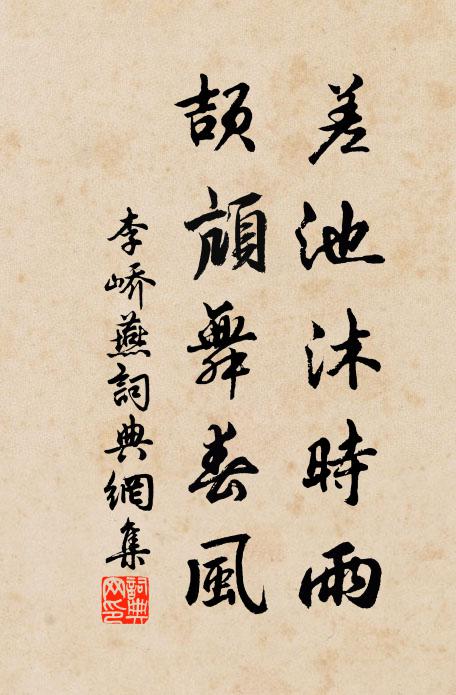 差池沐時雨
頡頏舞春風
李嶠燕詞典網集
詞典
网印